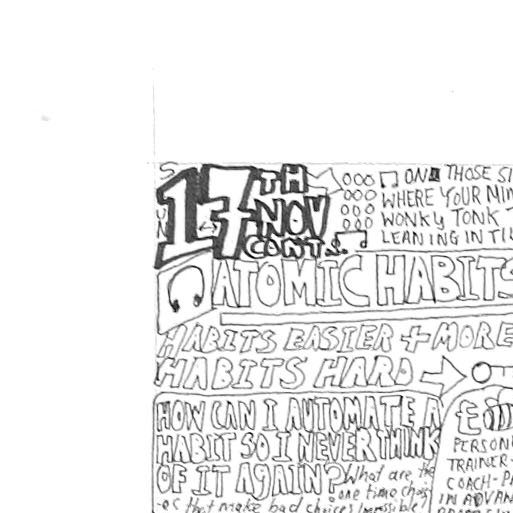 SUN
17TH
NOV
CONT.
ON THOSE
WHERE YOUR
WONKY TONK
LEANING IN
ATOMIC HABITS
HABITS EASIER + MORE
HABITS HARD →
HOW CAN I AUTOMATE A
HABIT SO I NEVER THINK
OF IT AGAIN? What are the
one time
that make bad choices impossible?
£
PERSON
TRAINER-
COACH-
IN ADVAN